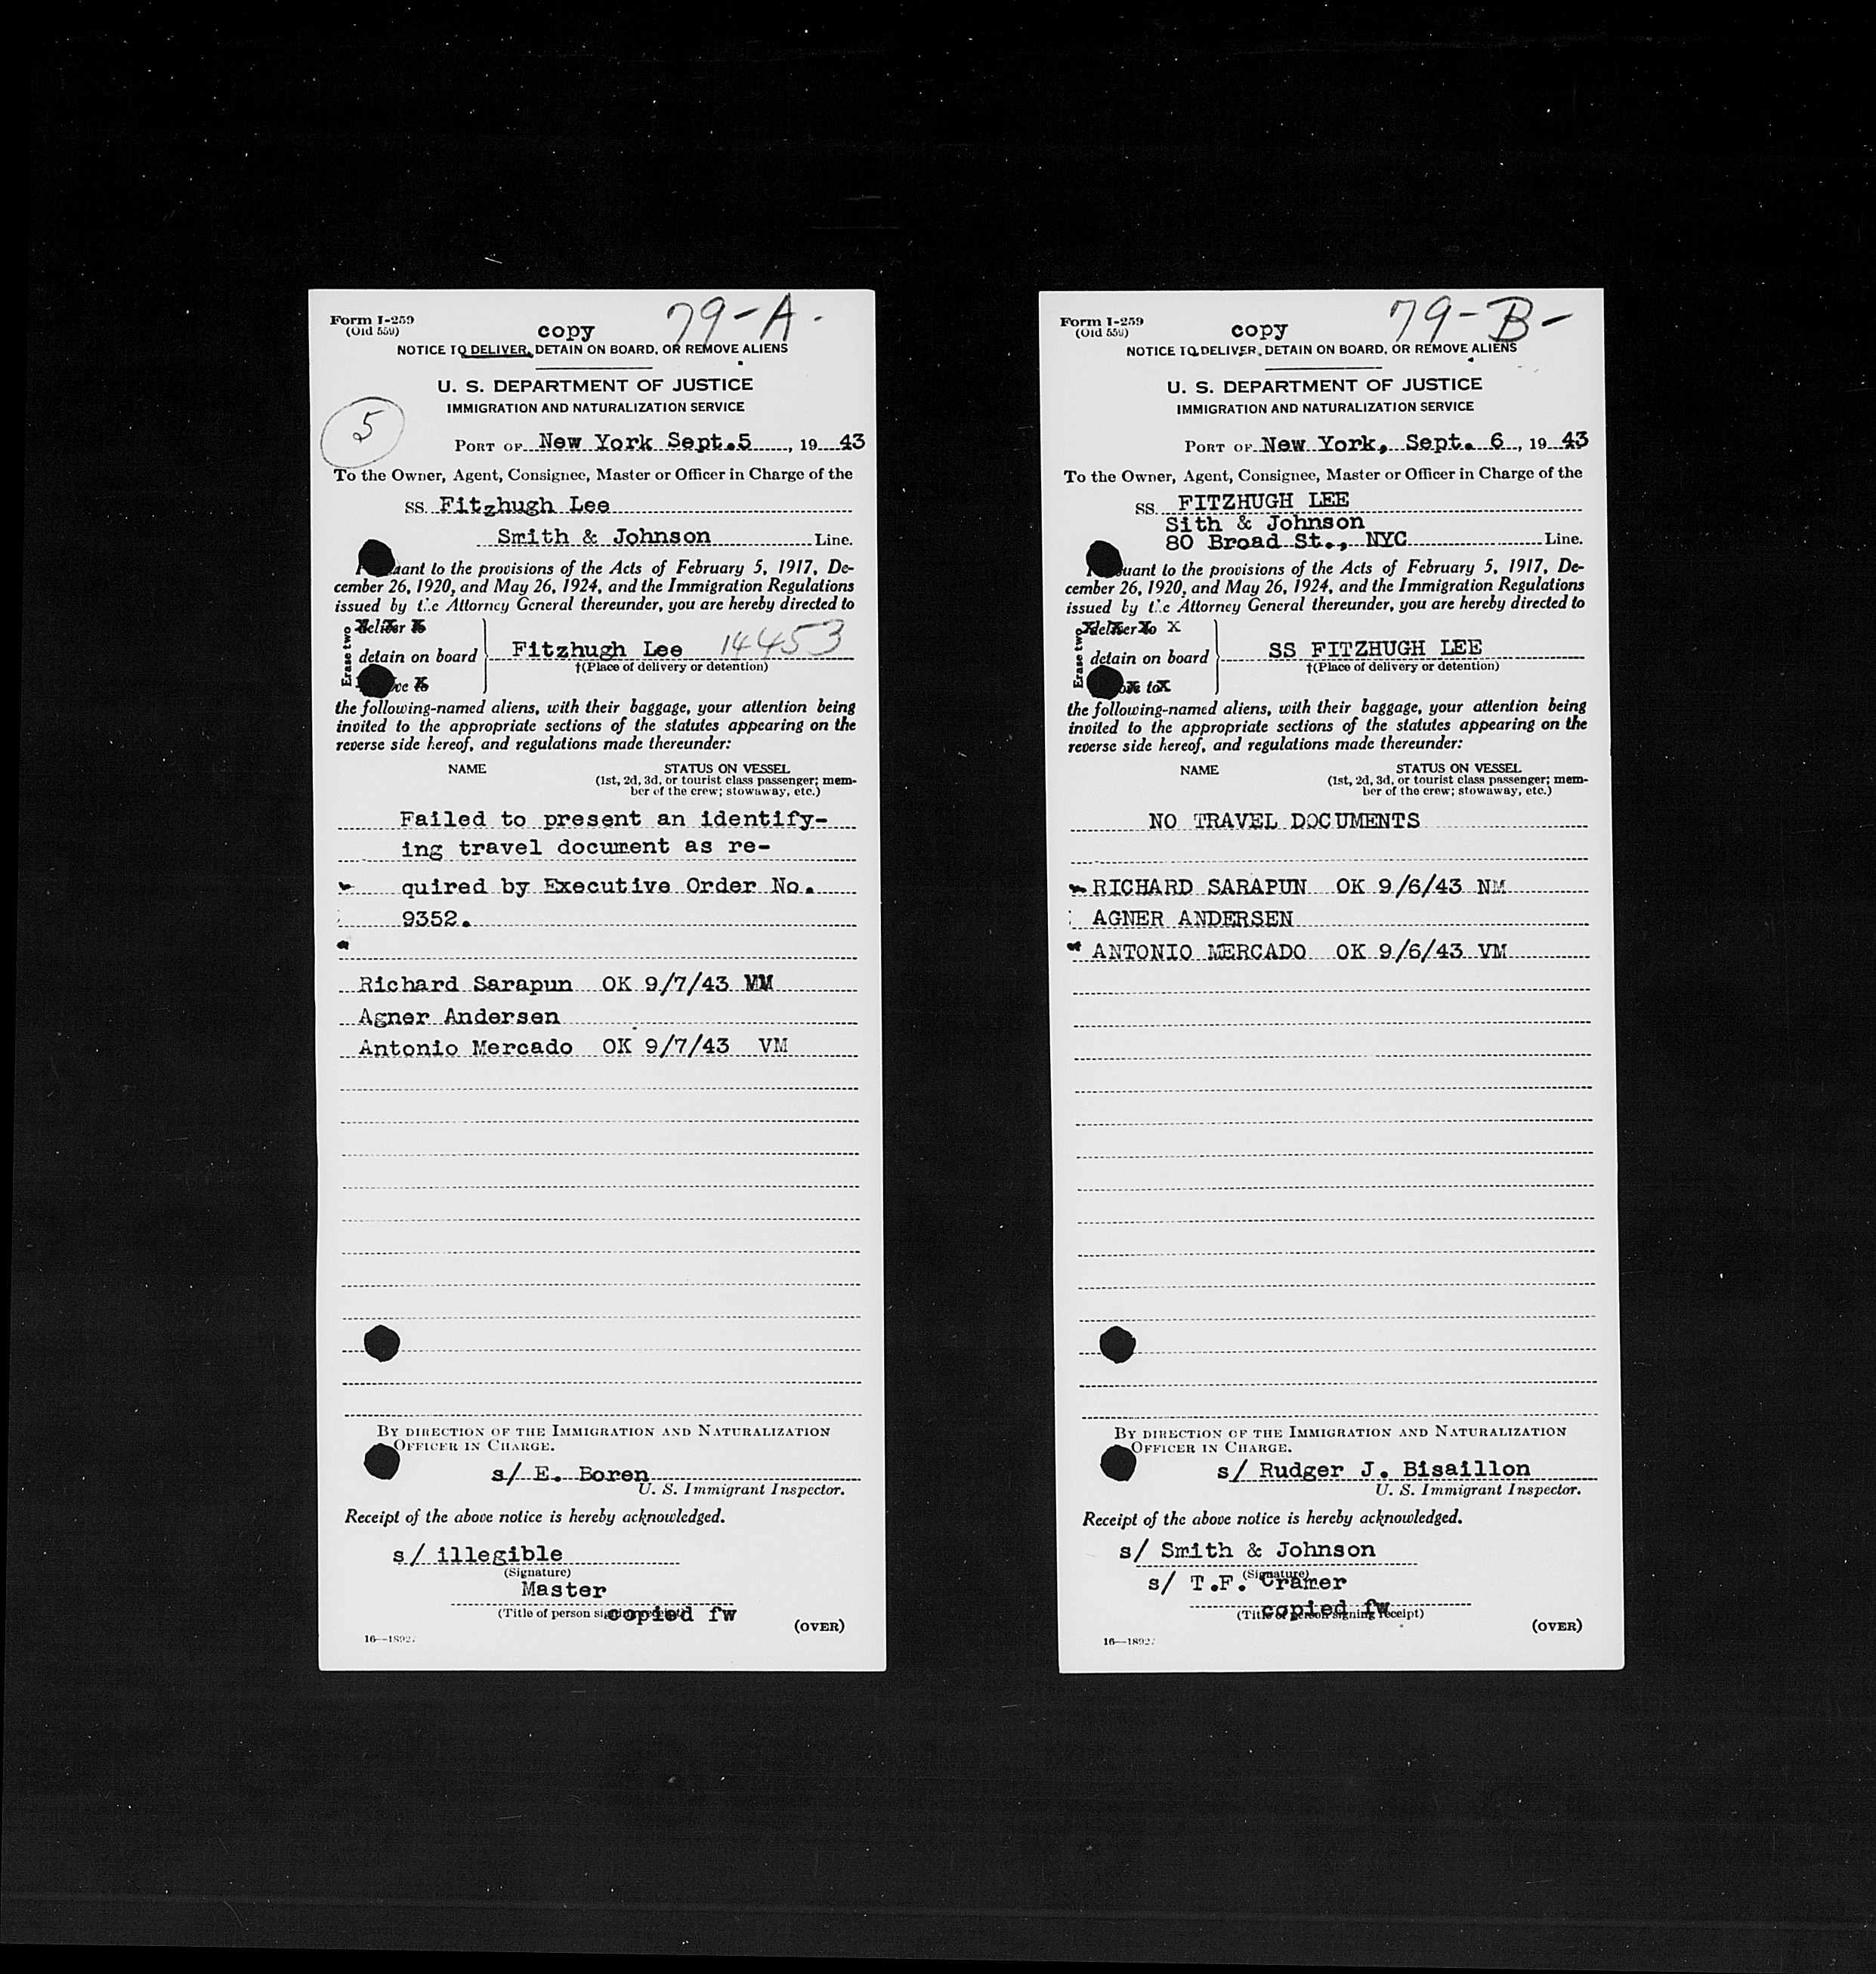 Form I-259
(Old 559)
79-A-
copy
NOTICE TO DELIVER, DETAIN ON BOARD, OR REMOVE ALIENS
U. S. DEPARTMENT OF JUSTICE
IMMIGRATION AND NATURALIZATION SERVICE
5
PORT OF New York Sept.5, 19 43
To the Owner, Agent, Consignee, Master or Officer in Charge of the
SS. Fitzhugh Lee
Smith & Johnson Line.
uant to the provisions of the Acts of February 5, 1917, De-
cember 26, 1920, and May 26, 1924, and the Immigration Regulations
issued by the Attorney General thereunder, you are hereby directed to
Erase two
deliver to
detain on board
Fitzhugh Lee 14453
†(Place of delivery or detention)
ve to
the following-named aliens, with their baggage, your attention being
invited to the appropriate sections of the statutes appearing on the
reverse side hereof, and regulations made thereunder:
NAME STATUS ON VESSEL
(1st, 2d, 3d, or tourist class passenger; mem-
ber of the crew; stowaway, etc.)
Failed to present an identify-
ing travel document as re-
quired by Executive Order No.
9352.
Richard Sarapun OK 9/7/43 MM
Agner Andersen
Antonio Mercado OK 9/7/43 VM
BY DIRECTION OF THE IMMIGRATION AND NATURALIZATION
OFFICER IN CHARGE.
s/ E. Boren
U. S. Immigrant Inspector.
Receipt of the above notice is hereby acknowledged.
s/ illegible
(Signature)
Master
(Title of person signing receipt)
copied fw
(OVER)
16—18927
Form I-259
(Old 559)
79-B-
copy
NOTICE TO DELIVER, DETAIN ON BOARD, OR REMOVE ALIENS
U. S. DEPARTMENT OF JUSTICE
IMMIGRATION AND NATURALIZATION SERVICE
PORT OF New York, Sept. 6, 19 43
To the Owner, Agent, Consignee, Master or Officer in Charge of the
SS. FITZHUGH LEE
Sith & Johnson
80 Broad St., NYC Line.
uant to the provisions of the Acts of February 5, 1917, De-
cember 26, 1920, and May 26, 1924, and the Immigration Regulations
issued by the Attorney General thereunder, you are hereby directed to
Erase two
deliver to X
detain on board
SS FITZHUGH LEE
†(Place of delivery or detention)
ove to X
the following-named aliens, with their baggage, your attention being
invited to the appropriate sections of the statutes appearing on the
reverse side hereof, and regulations made thereunder:
NAME STATUS ON VESSEL
(1st, 2d, 3d, or tourist class passenger; mem-
ber of the crew; stowaway, etc.)
NO TRAVEL DOCUMENTS
RICHARD SARAPUN OK 9/6/43 NM
AGNER ANDERSEN
ANTONIO MERCADO OK 9/6/43 VM
BY DIRECTION OF THE IMMIGRATION AND NATURALIZATION
OFFICER IN CHARGE.
s/ Rudger J. Bisaillon
U. S. Immigrant Inspector.
Receipt of the above notice is hereby acknowledged.
s/ Smith & Johnson
(Signature)
s/ T.F. Cramer
copied fw
(Title of person signing receipt)
(OVER)
16—18927